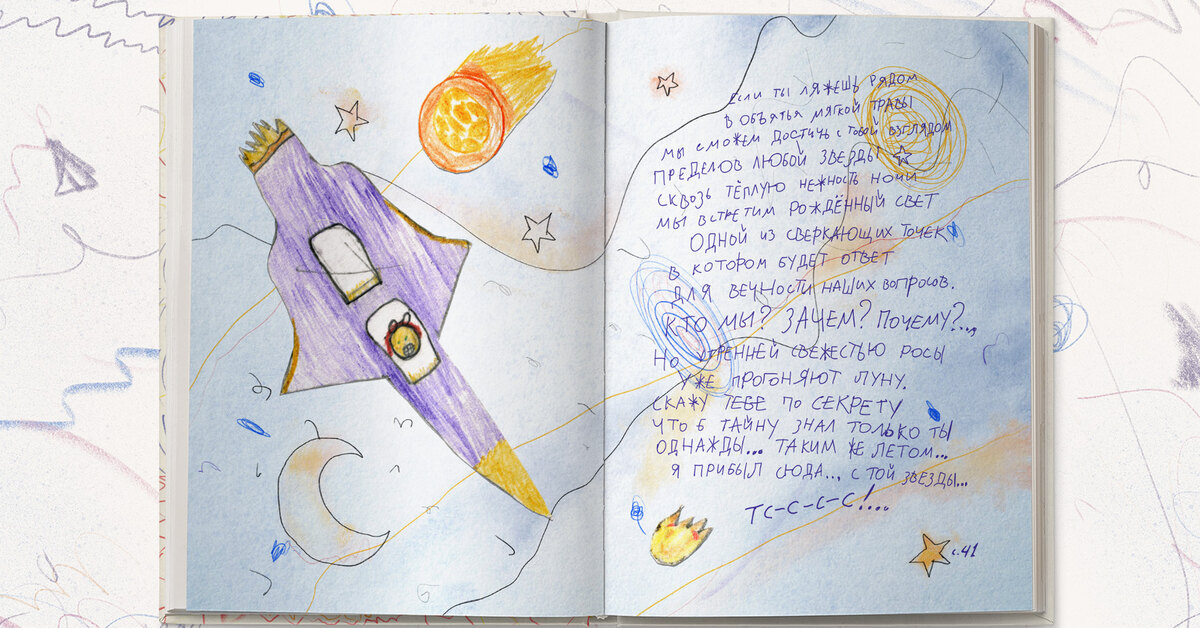 Если ты ляжешь рядом
в объятья мягкой травы
мы сможем достичь с тобой взглядом
пределов любой звезды
сквозь тёплую нежность ночи
мы встретим рождённый свет
одной из сверкающих точек
в котором будет ответ
для вечности наших вопросов.
Кто мы? Зачем? Почему?...
Но утренней свежестью росы
уже прогоняют луну.
Скажу тебе по секрету
что б тайну знал только ты
однажды... таким же летом...
я прибыл сюда... с той звезды...
тс-с-с-с!....
с.41